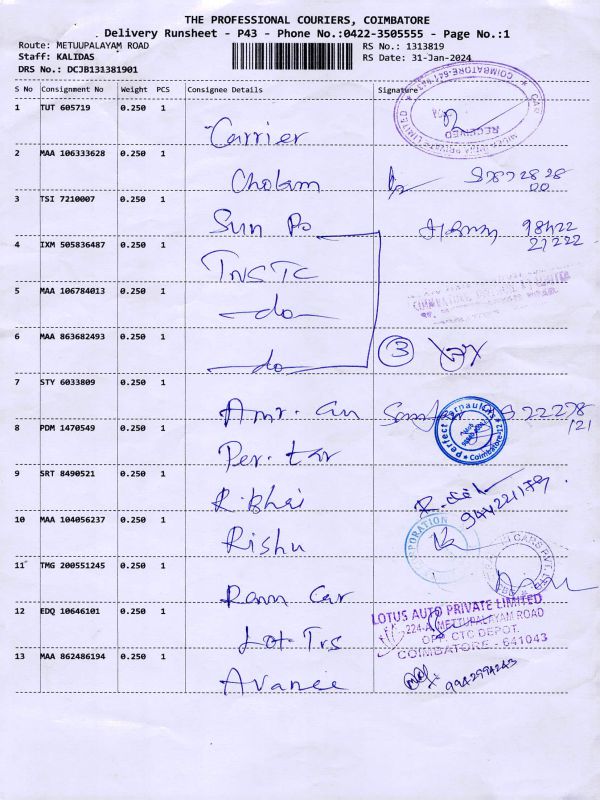 THE PROFESSIONAL COURIERS, COIMBATORE
Delivery Runsheet - P43 - Phone No.:0422-3505555 - Page No.:1
Route: METUUPALAYAM ROAD
RS No.: 1313819
Staff: KALIDAS
RS Date: 31-Jan-2024
DRS No.: DCJB131381901
S No Consignment No Weight PCS Consignee Details Signature
1 TUT 605719 0.250 1
Carrier
RECEIVED
2 MAA 106333628 0.250 1
Cholam
3 TSI 7210007 0.250 1
Sun Po
4 IXM 505836487 0.250 1
TNSTC
5 MAA 106784013 0.250 1
-do-
6 MAA 863682493 0.250 1
-do-
3
7 STY 6033809 0.250 1
8 PDM 1470549 0.250 1
Per. tar
9 SRT 8490521 0.250 1
R. Bhai
10 MAA 104056237 0.250 1
Rishu
11 TMG 200551245 0.250 1
Ramn Car
12 EDQ 10646101 0.250 1
Lot. Trs
LOTUS AUTO PRIVATE LIMITED
224-A, METTUPALAYAM ROAD
OPP. CTC DEPOT,
COIMBATORE - 641043
13 MAA 862486194 0.250 1
Avanee
9942994243